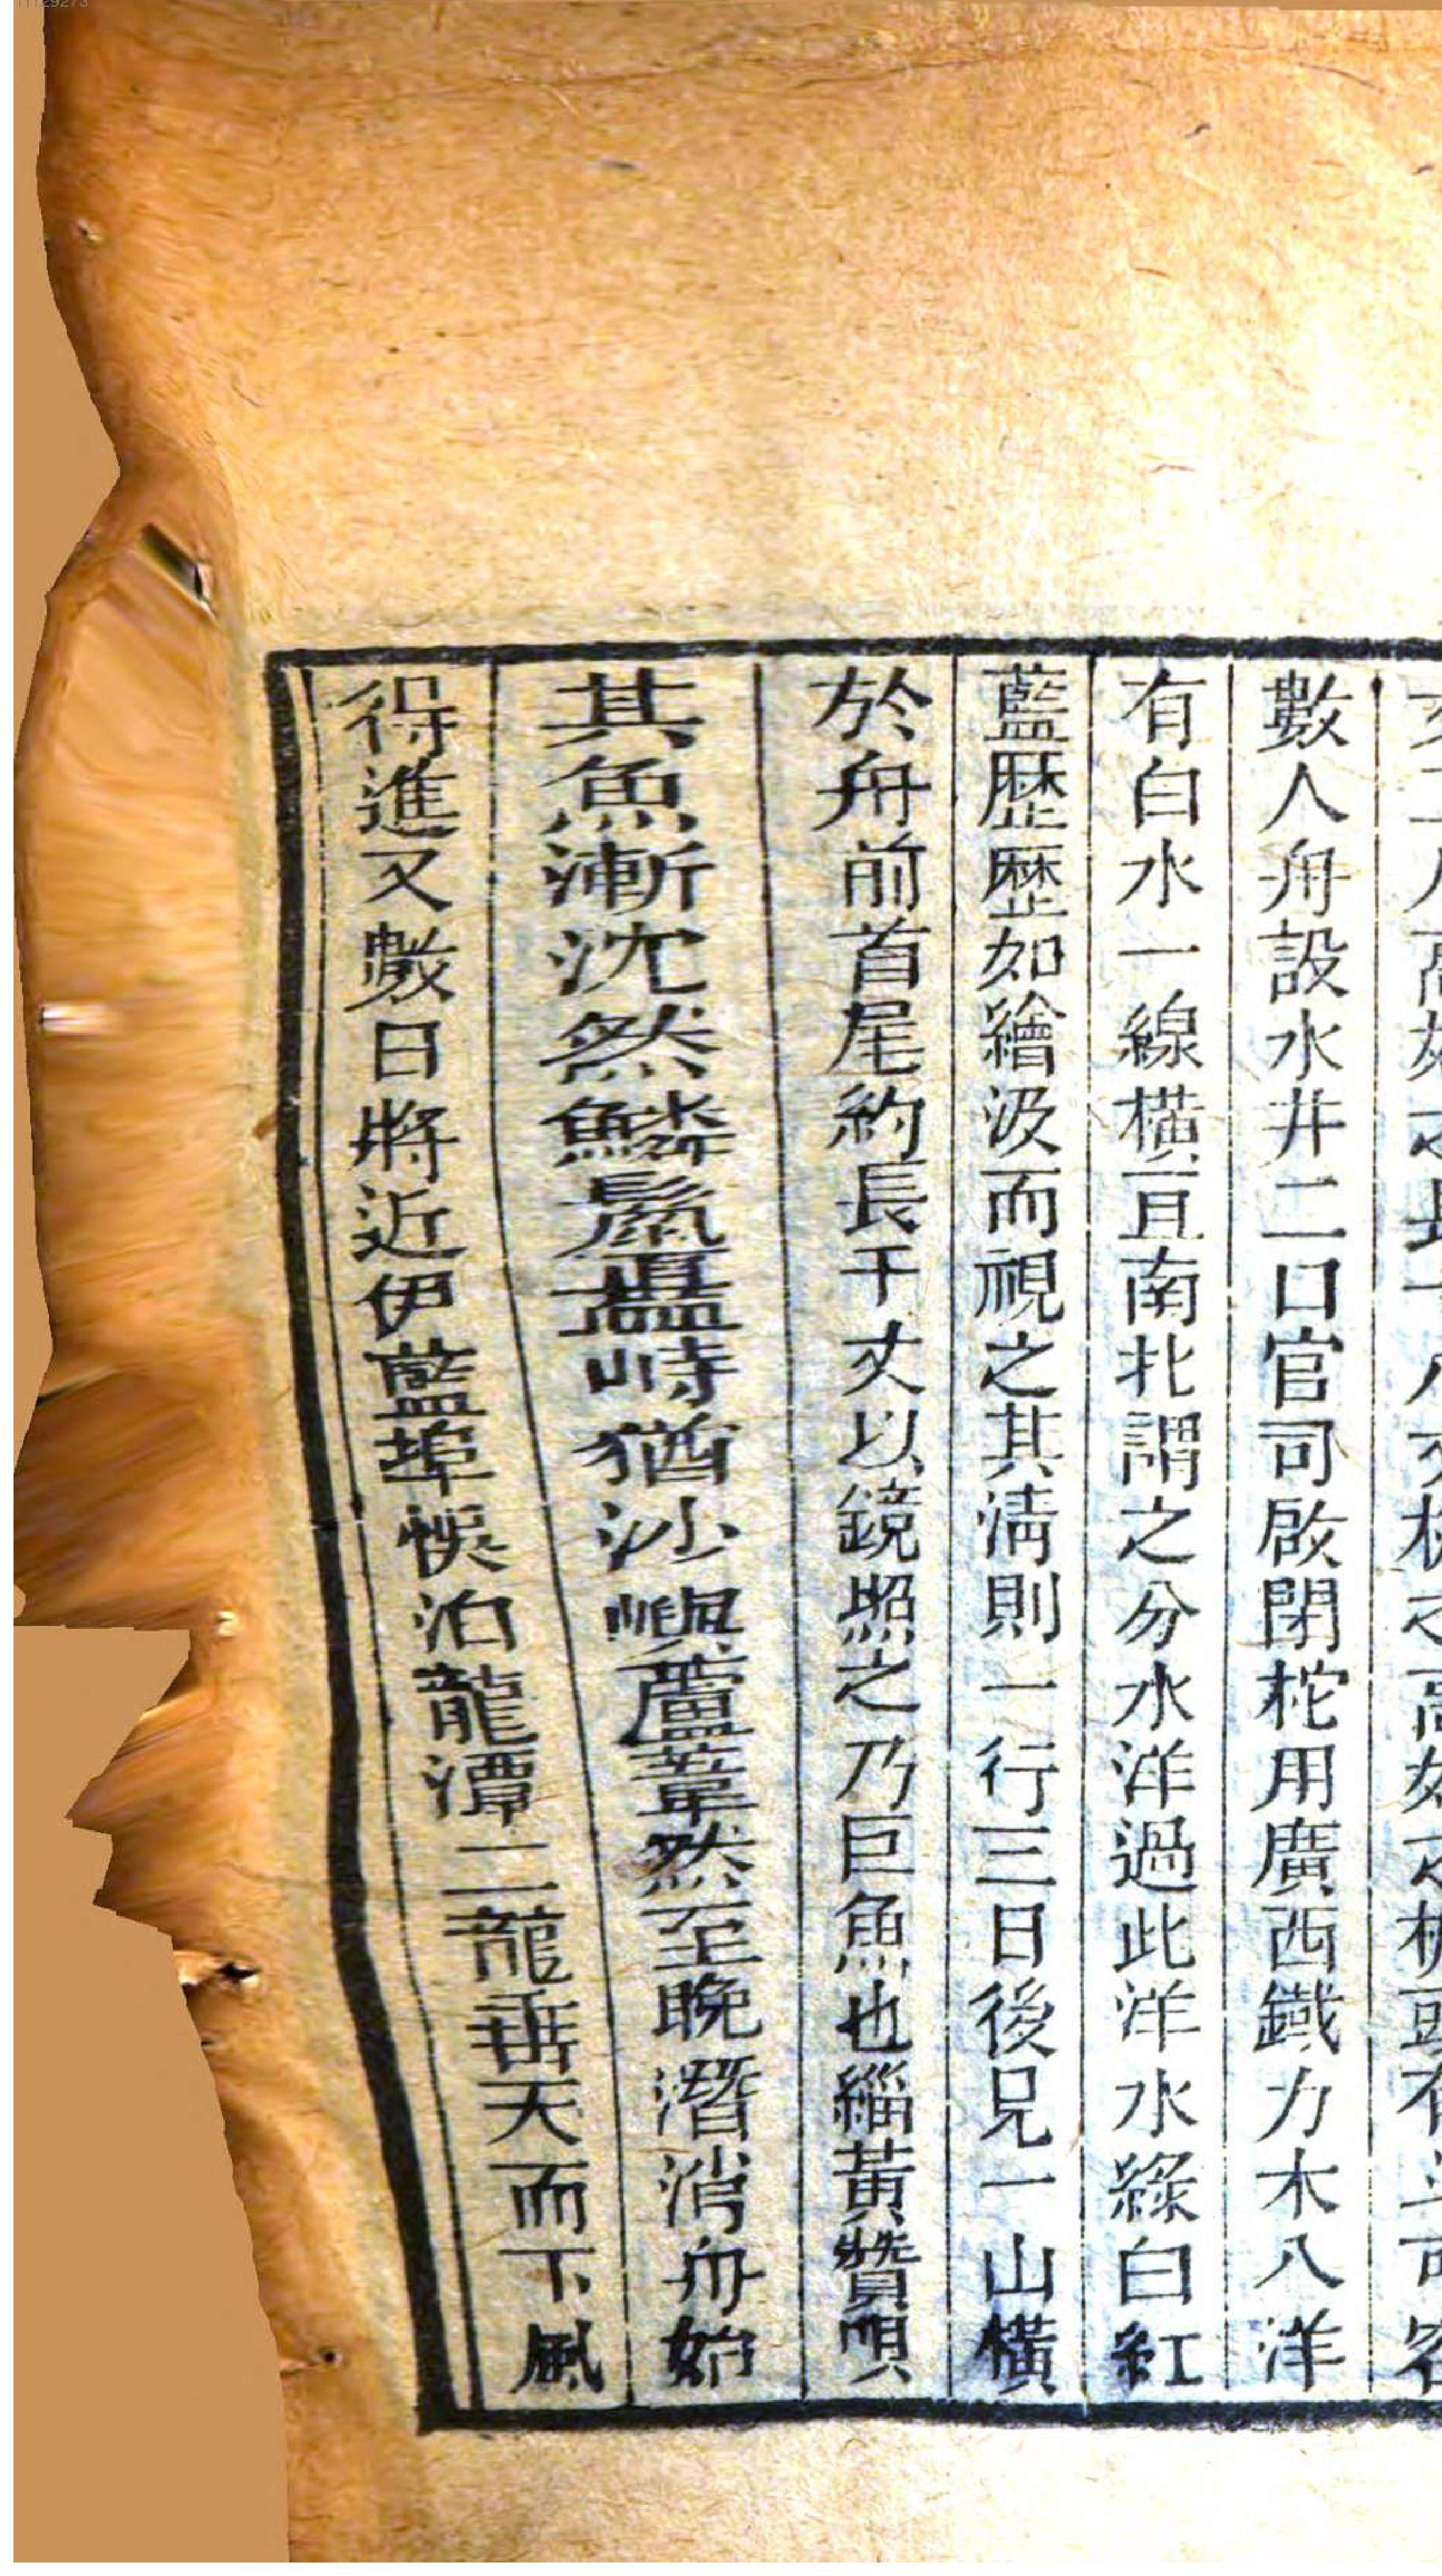 數人舟設水井二口官司啟閉柁用廣西鐵力木八洋
有白水一線橫亘南北謂之分水洋過此洋水綠白紅
藍歷歷如繪汲而視之其淸則一行三日後見一山橫
於舟前首尾約長千丈以鏡照之乃巨魚也緇黃贊唄
其魚漸沈然鱗鬣矗峙猶沙嶼蘆葦然至晚潛消舟始
得進又數日將近伊藍埠悞泊龍潭二龍垂天而下風